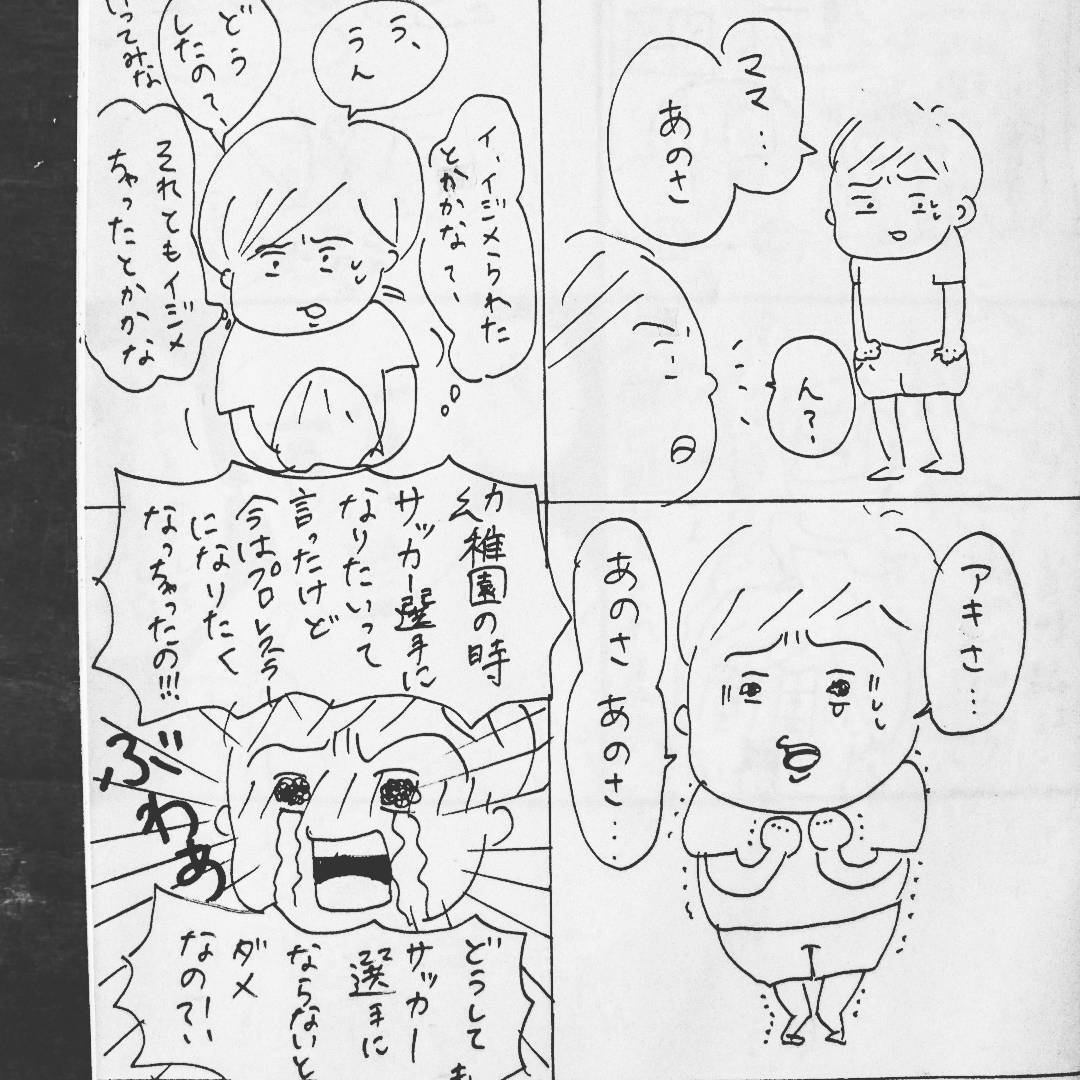 ママ…
あのさ
ん？
アキさ…
あのさ あのさ…
う、
うん
どう
したの？
いってみな
イ、イジメられた
とかかな？
それともイジメ
ちゃったとかかな
幼稚園の時
サッカー選手に
なりたいって
言ったけど
今はプロレスラー
になりたく
なっちゃったの!!!
ぶわぁ
どうしても
サッカー
選手に
ならないと
ダメ
なのー？